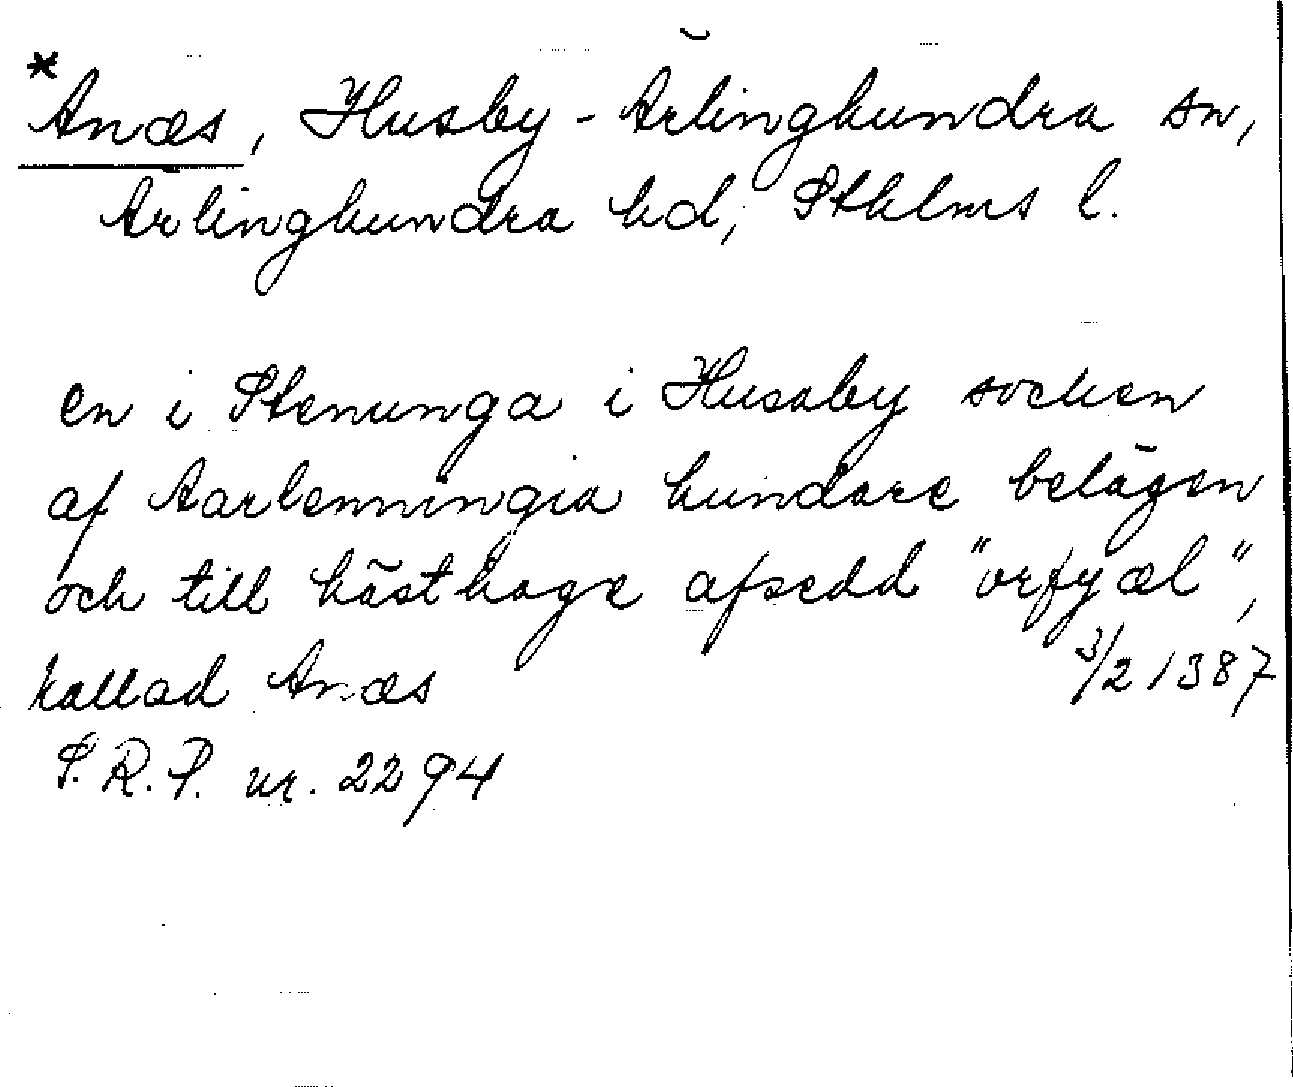 *Anæs, Husby-Ärlinghundra sn,
Ärlinghundra hd, Sthlms l.
en i Stenunga i Husaby socken
af Aarlenningia hundare belägen
och till hästhage afsedd "orfyæl",
kallad Anæs 3/2 1387
S.R.P. nr. 2294